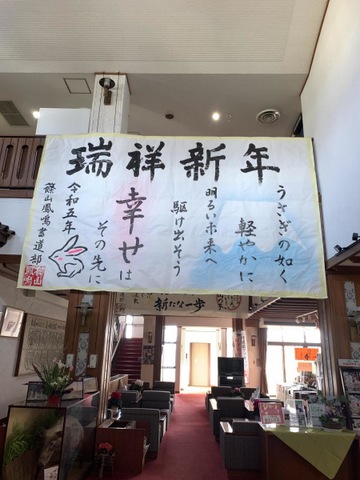 瑞祥新年
うさぎの如く
軽やかに
明るい未来へ
駆け出そう
幸せは
その先に
令和五年
篠山鳳鳴書道部
新たな一歩